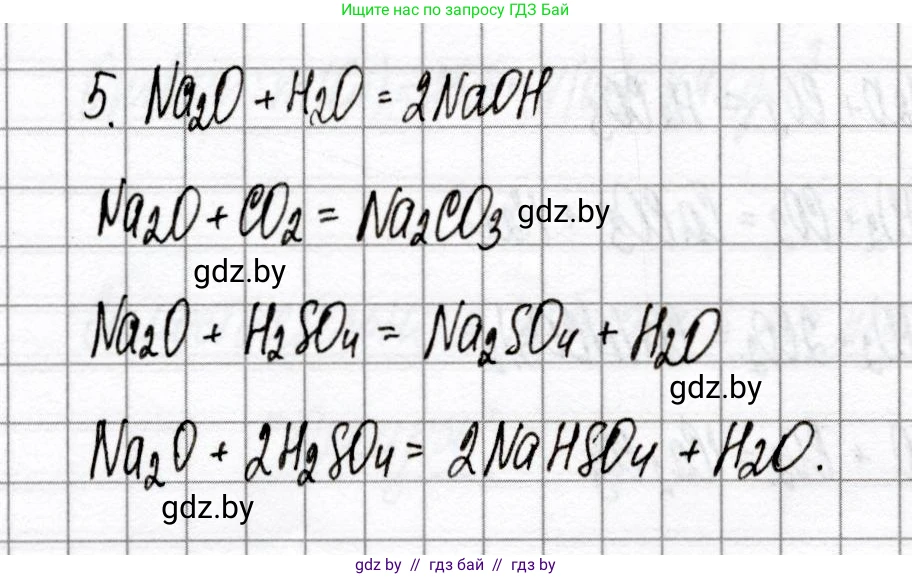 Ищите нас по запросу ГДЗ Бай
5. Na₂O + H₂O = 2NaOH
Na₂O + CO₂ = Na₂CO₃ gdz.by
gdz.by
Na₂O + H₂SO₄ = Na₂SO₄ + H₂O
gdz.by
Na₂O + 2H₂SO₄ = 2NaHSO₄ + H₂O.
gdz.by
gdz.by // гдз бай // gdz by